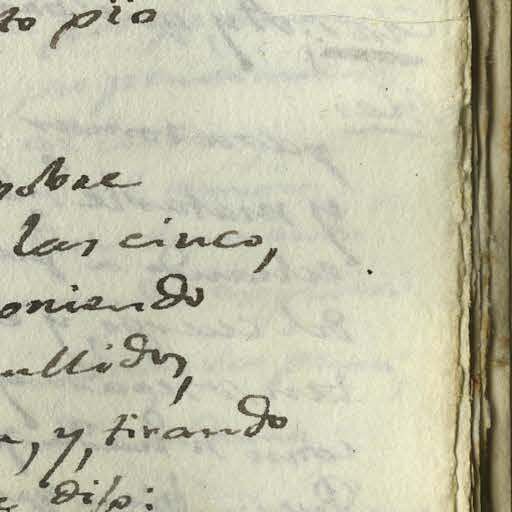 to pïo
sobre
las cinco,
oniendo
ullidos,
, y, tirando
disp: